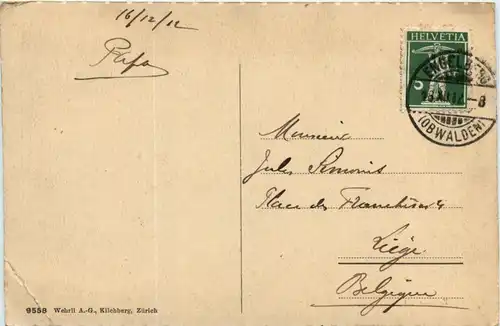 16/12/12
Papa
HELVETIA
5
ENGELBERG
-8
(OBWALDEN)
Monsieur
Jules Simonis
Place des Franchises 4
Liège
Belgique
9558 Wehrli A.-G., Kilchberg, Zürich